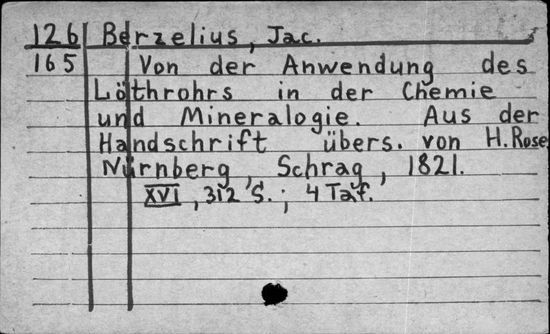 126 Berzelius, Jac.
165 Von der Anwendung des
Löthrohrs in der Chemie
und Mineralogie. Aus der
Handschrift übers. von H. Rose
Nürnberg, Schrag, 1821.
XVI, 312 S.; 4 Taf.